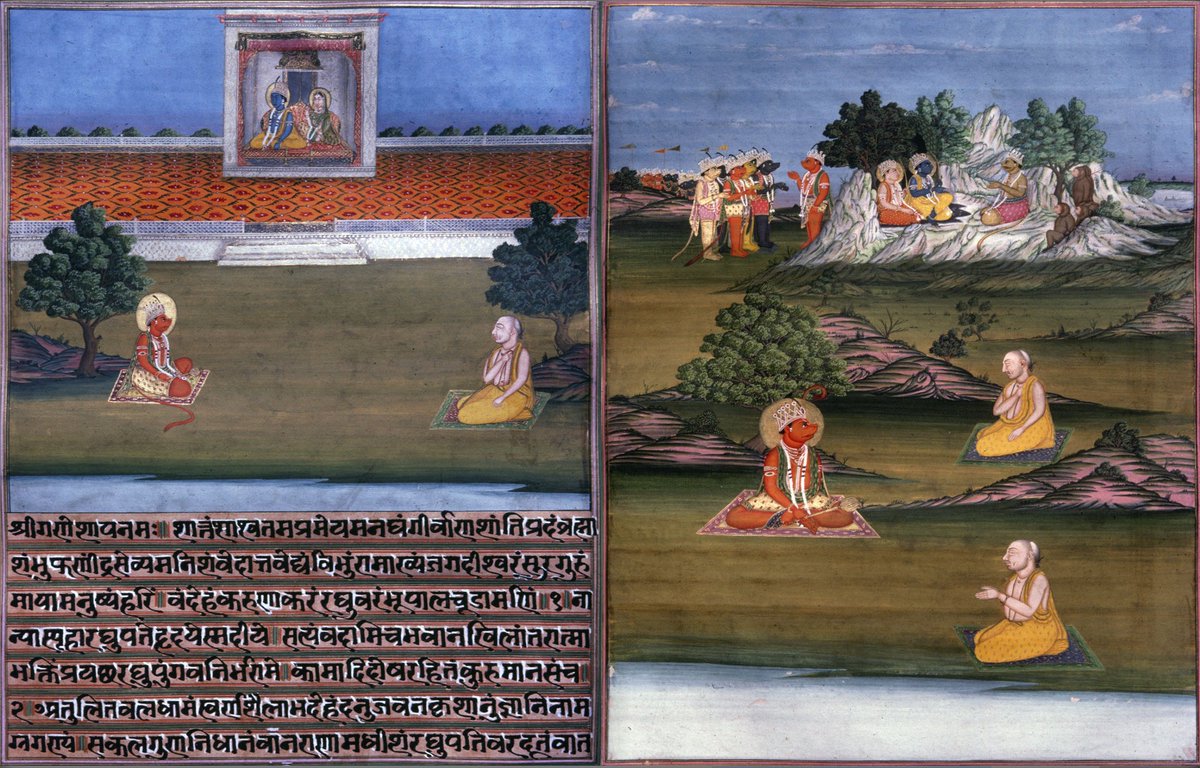 श्रीगणेशायनमः॥ शांतंशाश्वतमप्रमेयमनघंगीर्वाणशांतिप्रदंब्रह्मा
शंभुफणींद्रसेव्यमनिशंवेदांतवेद्यंविभुंरामाख्यंजगदीश्वरंसुरगुरुं
मायामनुष्यंहरिं वंदेहंकरुणाकरंरघुवरंभूपालचूडामणिं॥१॥ना
न्यास्पृहारघुपतेहृदयेस्मदीये सत्यंवदामिचभवानखिलांतरात्मा
भक्तिंप्रयछरघुपुंगवनिर्भरांमे कामादिदोषरहितंकुरुमानसंच
२॥अतुलितबलधामंस्वर्णशैलाभदेहंदनुजवनकृशानुंज्ञानिनाम
ग्रगण्यं सकलगुणनिधानंवानराणामधीशंरघुपतिवरदूतंवात